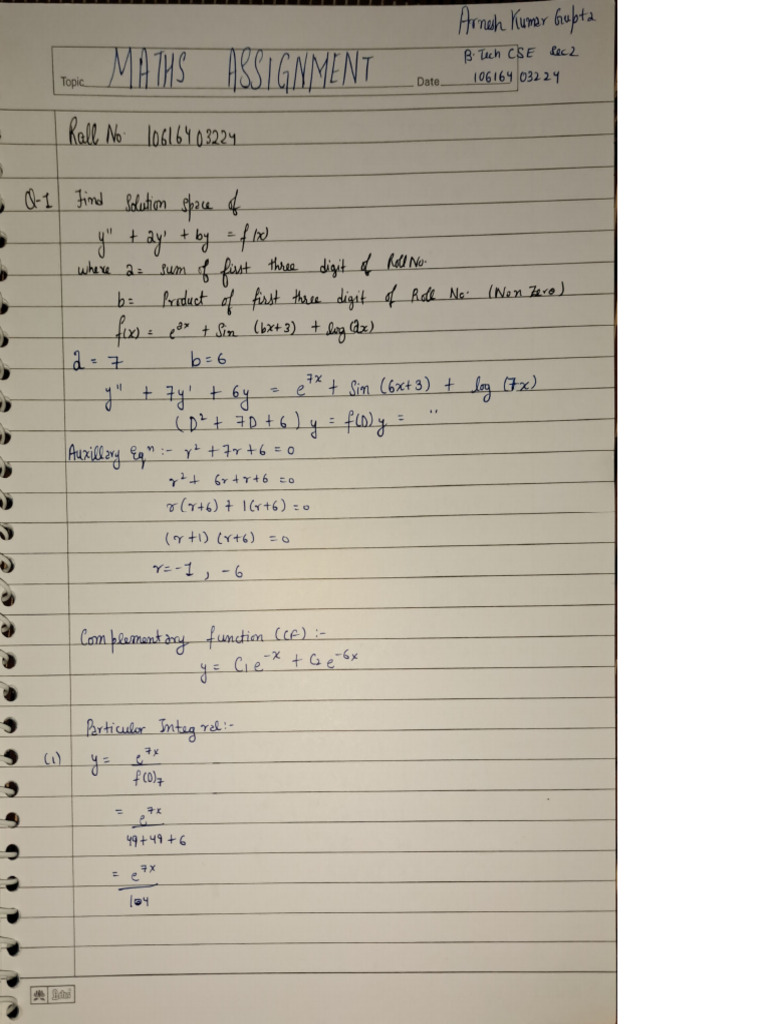 Arnesh Kumar Gupta
B.Tech CSE Sec 2
10616403224
Topic MATHS ASSIGNMENT Date
Roll No. 10616403224
Q-1 Find Solution space of
y'' + ay' + by = f(x)
where a = sum of first three digit of Roll No.
b = Product of first three digit of Roll No. (Non Zero)
f(x) = e^{ax} + Sin (bx+3) + log(ax)
a = 7 b = 6
y'' + 7y' + 6y = e^{7x} + Sin (6x+3) + log (7x)
(D² + 7D + 6) y = f(D)y = "
Auxillary Eqⁿ :- r² + 7r + 6 = 0
r² + 6r + r + 6 = 0
r(r+6) + 1(r+6) = 0
(r+1) (r+6) = 0
r = -1 , -6
Complementary function (CF) :-
y = C₁e^{-x} + C₂e^{-6x}
Particular Integral :-
(1) y = e^{7x}
f(D)₇
= e^{7x}
49+49+6
= e^{7x}
104